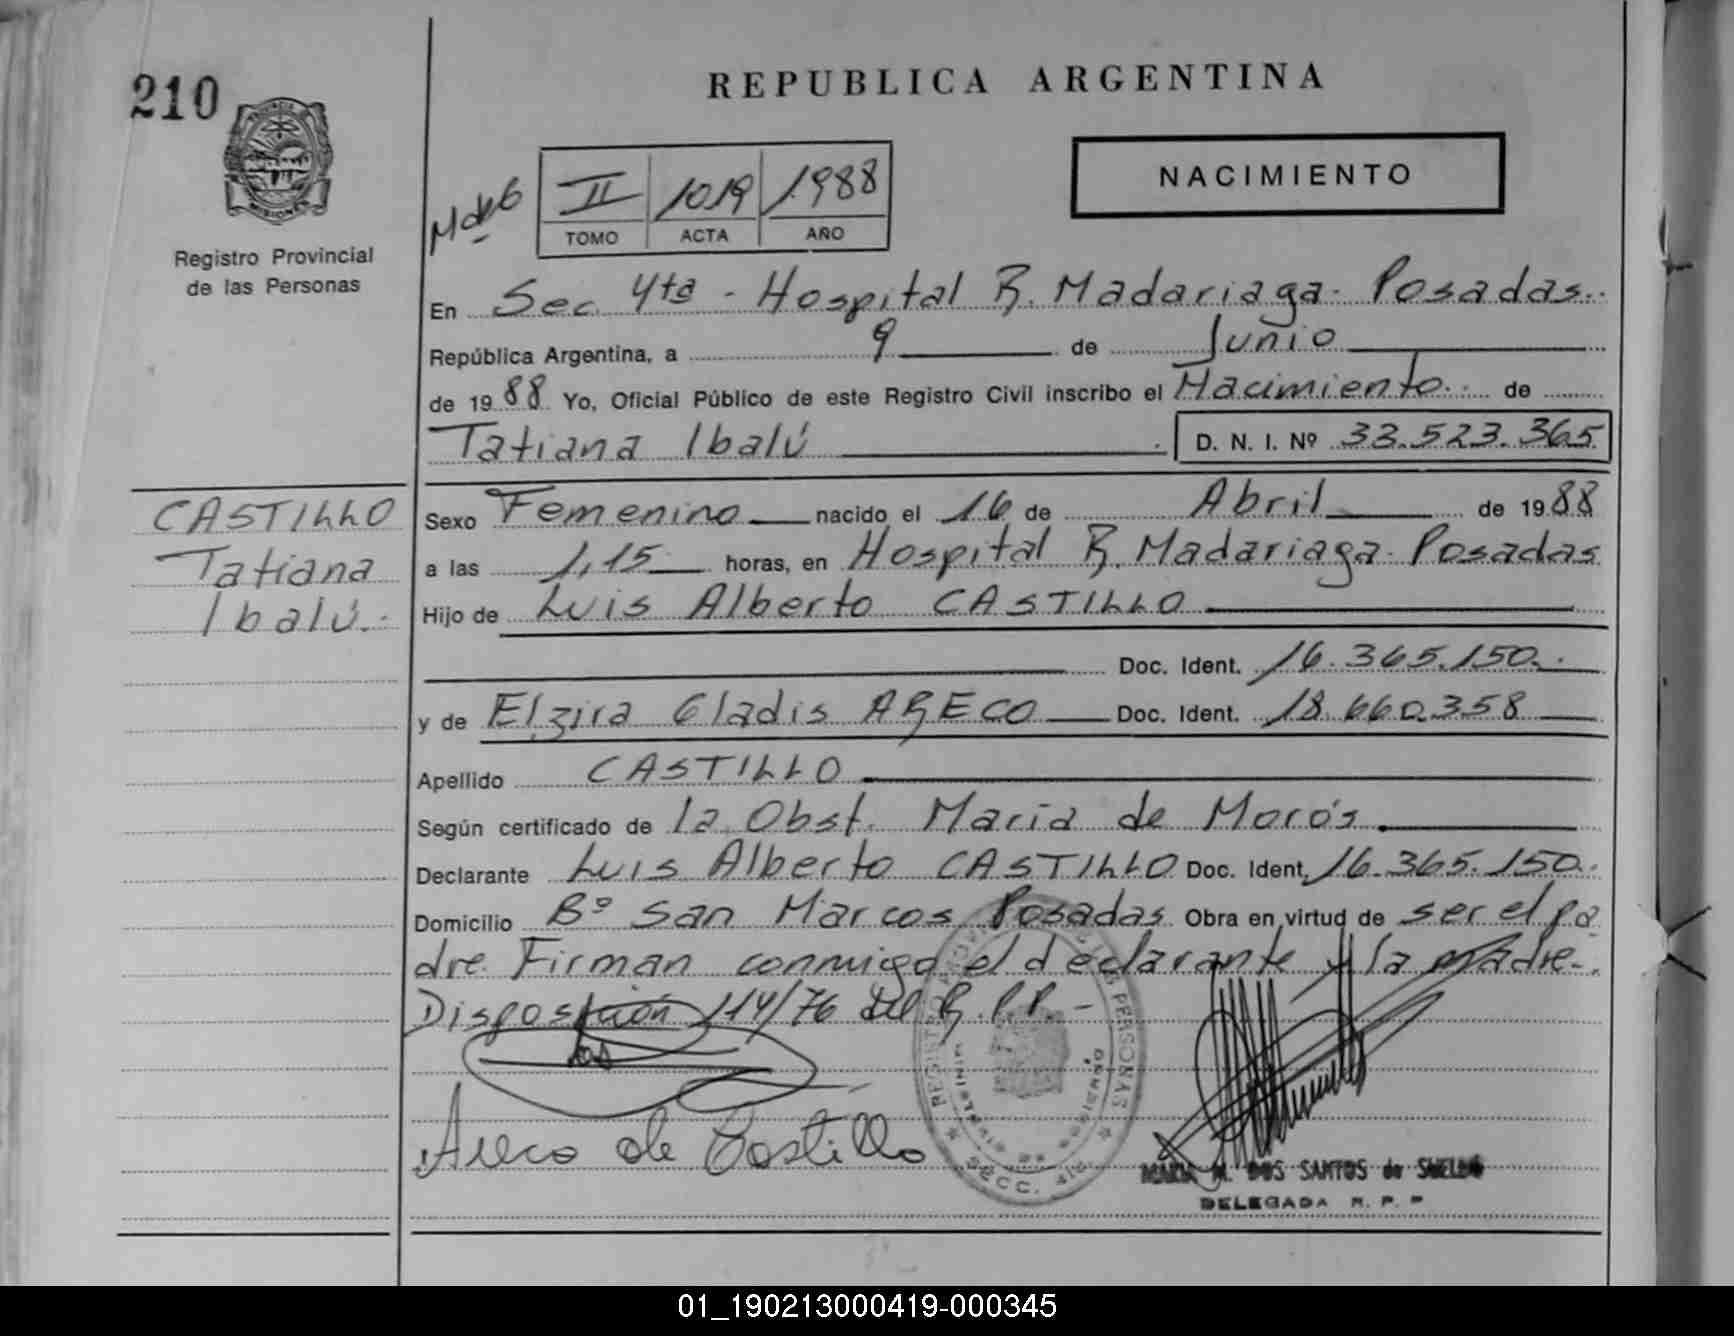 210
REPUBLICA ARGENTINA
NACIMIENTO
II 1019 1988
TOMO ACTA AÑO
PROVINCIA
MISIONES
Registro Provincial
de las Personas
En Sec. 4ta - Hospital R. Madariaga - Posadas.
República Argentina, a 9 de Junio
de 1988 Yo, Oficial Público de este Registro Civil inscribo el Nacimiento de
Tatiana Ibalú D. N. I. Nº 33.523.365
CASTILLO
Tatiana
Ibalú.-
Sexo Femenino nacido el 16 de Abril de 1988
a las 1,15 horas, en Hospital R. Madariaga - Posadas
Hijo de Luis Alberto CASTILLO
Doc. Ident. 16.365.150.-
y de Elzira Gladis ARECO Doc. Ident. 18.660.358
Apellido CASTILLO
Según certificado de la Obst. Maria de Morós.
Declarante Luis Alberto CASTILLO Doc. Ident. 16.365.150.-
Domicilio Bº San Marcos Posadas. Obra en virtud de ser el pa
dre. Firman conmigo el declarante y la madre.-
Disposición 114/76 del R.P.P.-
Areco de Castillo
REGISTRO PROVINCIAL DE LAS PERSONAS
SECC. 4ta
MARIA M. DOS SANTOS de
DELEGADA R. P. P.
01_190213000419-000345